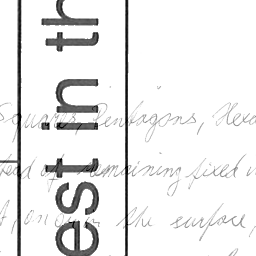 est in th
Squares, Pentagons, Hexa
of remaining fixed
the surface,